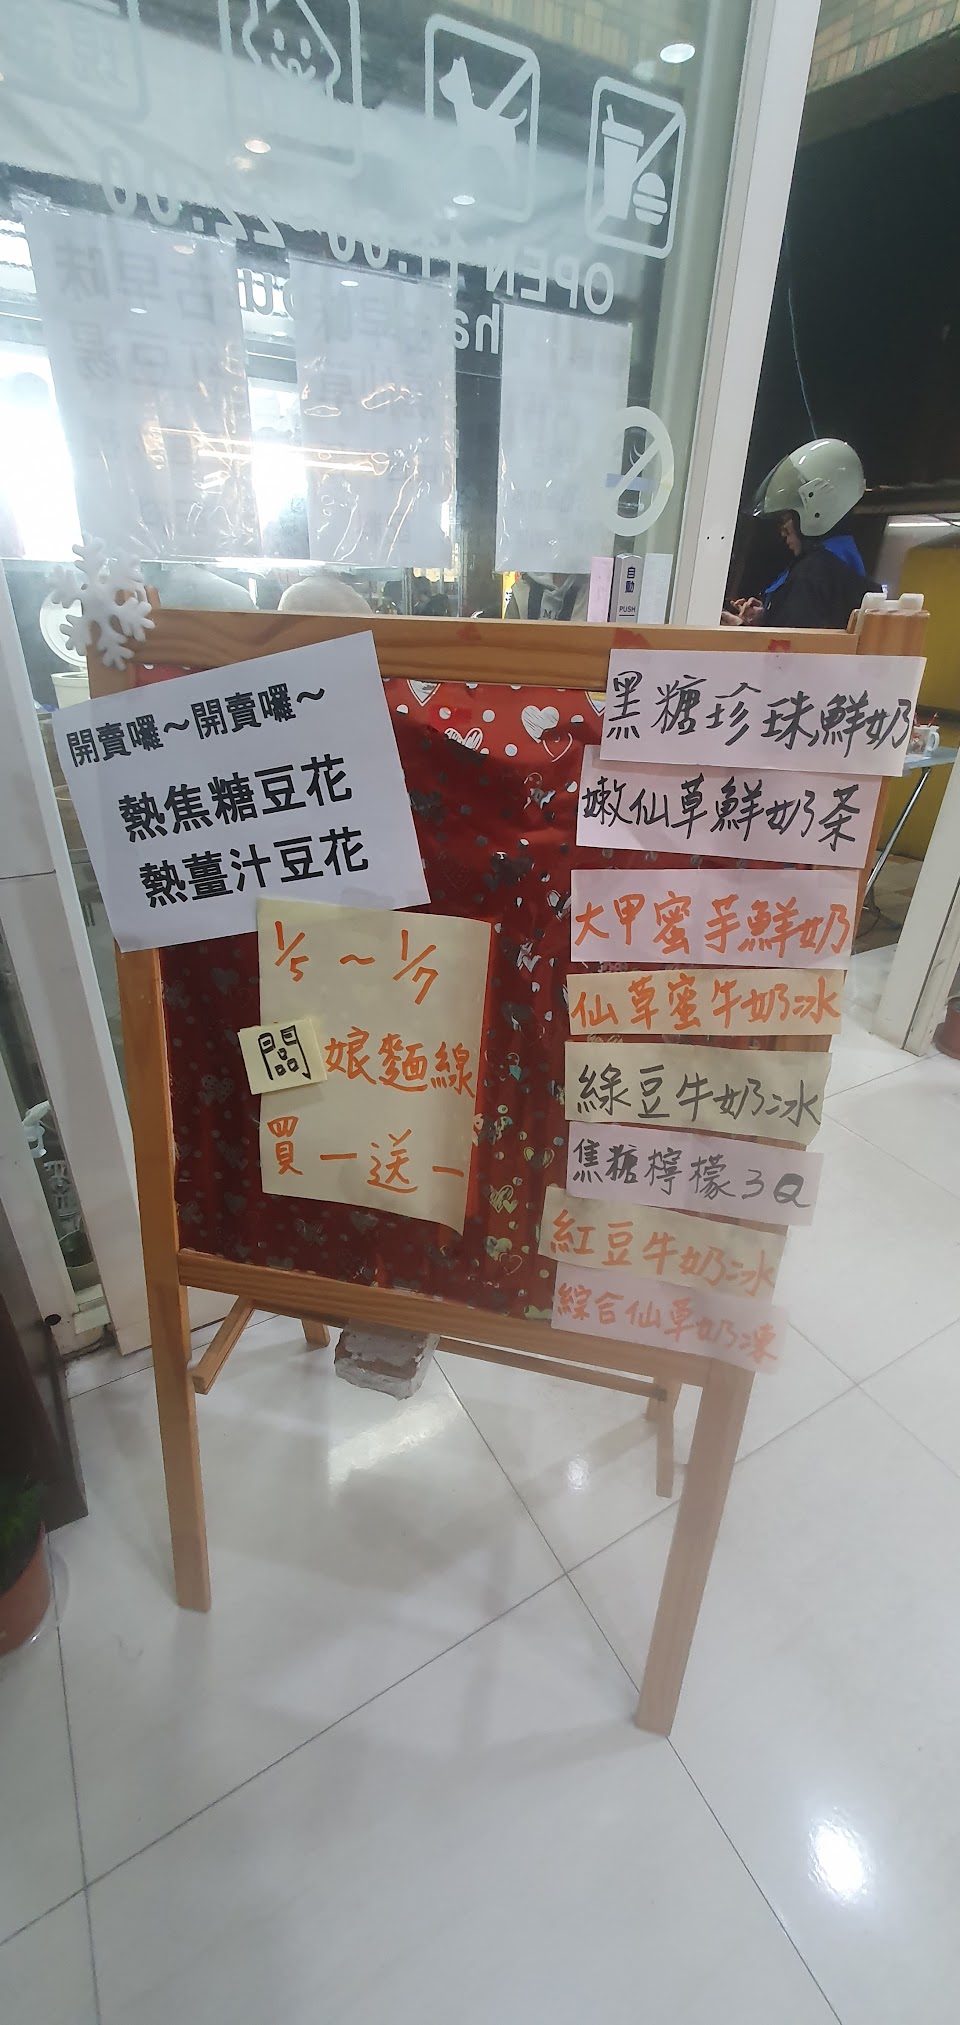 OPEN 11:00~22:00
自動
PUSH
開賣囉～開賣囉～
熱焦糖豆花
熱薑汁豆花
1/5 ~ 1/7
闆娘麵線
買一送一
黑糖珍珠鮮奶
嫩仙草鮮奶茶
大甲蜜芋鮮奶
仙草蜜牛奶冰
綠豆牛奶冰
焦糖檸檬3Q
紅豆牛奶冰
綜合仙草奶凍